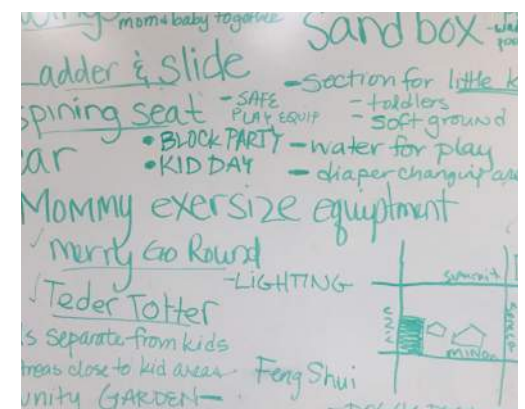 mom & baby together
Sand box
Ladder & slide
- section for little k
spining seat - SAFE
PLAY EQUIP
- toddlers
- soft ground
ar
• BLOCK PARTY
- water for play
• KID DAY
- diaper changing are
Mommy exersize equiptment
✓ merry Go Round
- LIGHTING -
summit
✓ Teder Totter
MINOR
s separate from kids
areas close to kid areas
Feng Shui
unity GARDEN -